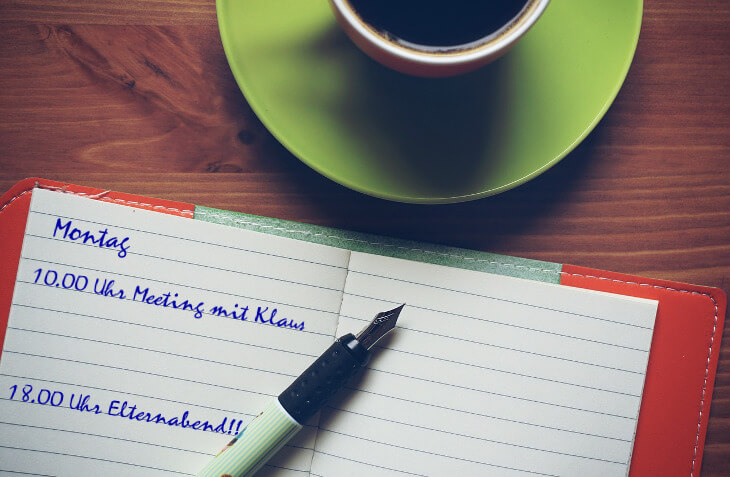 Montag
10.00 Uhr Meeting mit Klaus
18.00 Uhr Elternabend!!